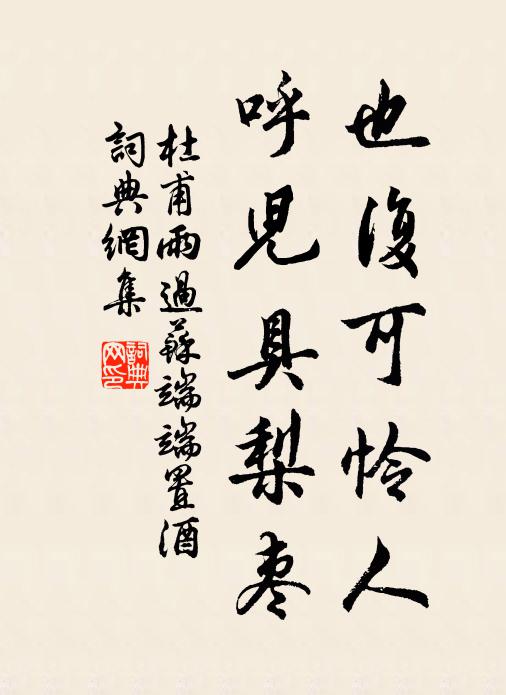 也復可怜人
呼児具梨枣
杜甫雨過蘇端端置酒
詞典網集
詞典網印